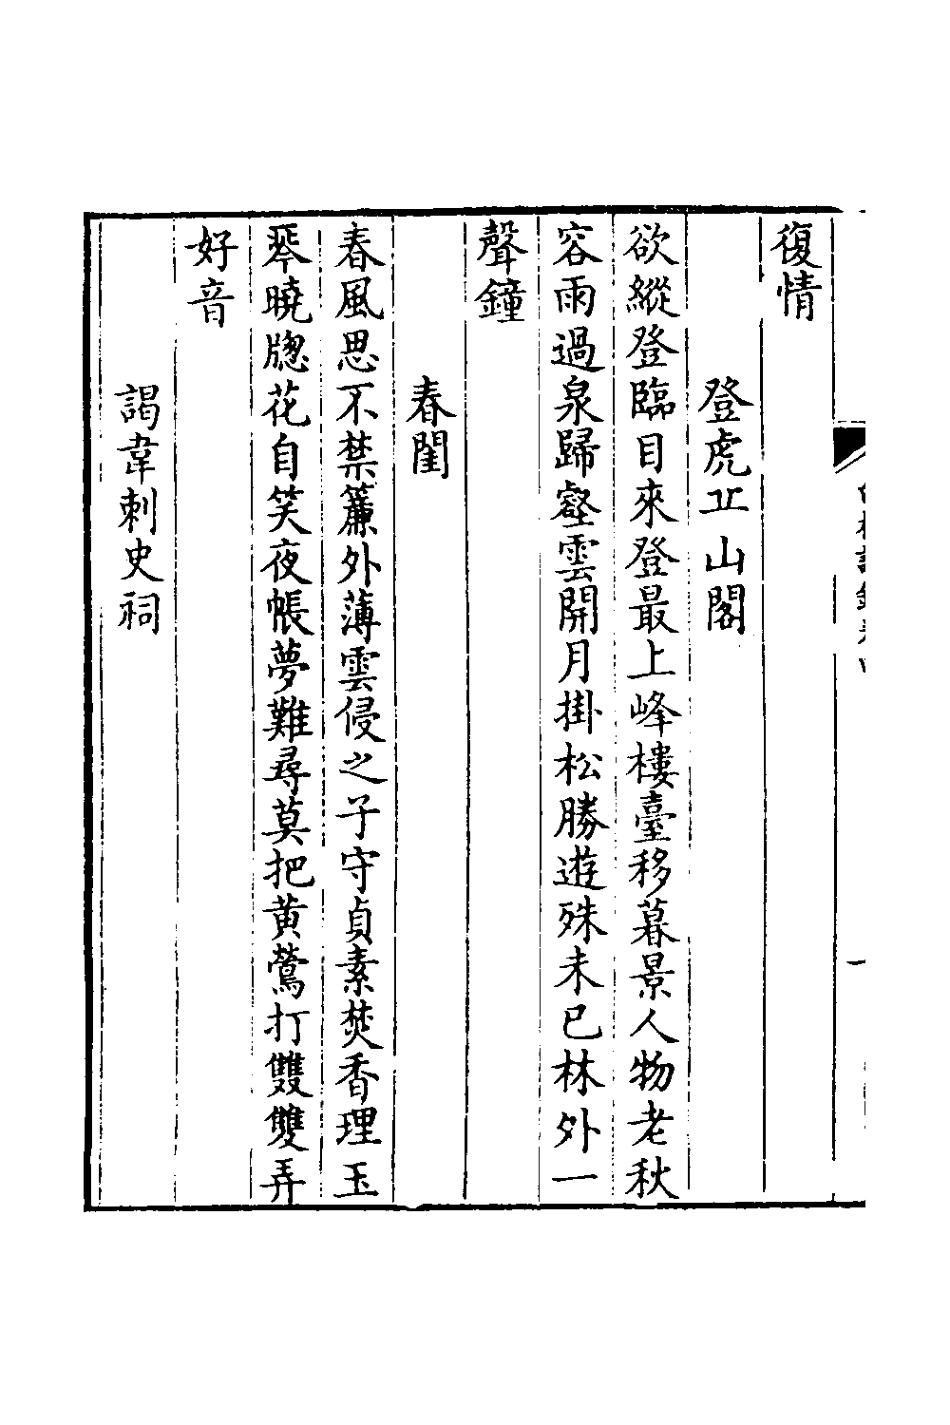 復情
登虎丘山閣
欲縱登臨目來登最上峰樓臺移暮景人物老秋
容雨過泉歸壑雲開月掛松勝遊殊未已林外一
聲鐘
春閨
春風思不禁簾外薄雲侵之子守貞素焚香理玉
琴曉牕花自笑夜帳夢難尋莫把黄鶯打雙雙弄
好音
謁韋刺史祠